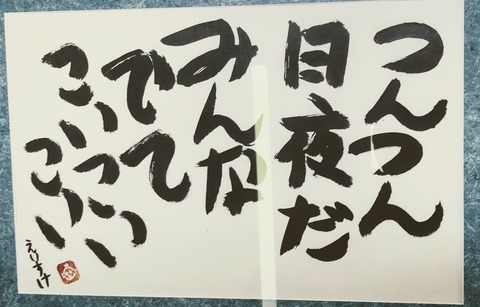 つんつん
月夜だ
みんな
でて
こいこいこい
えりすけ